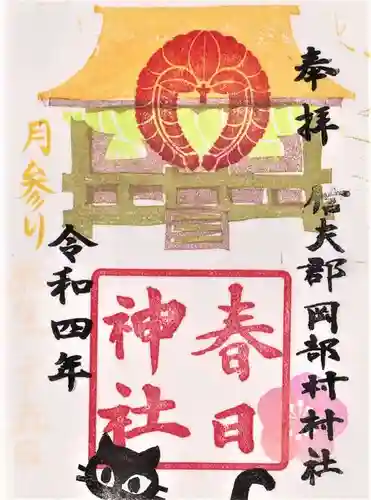 奉拝
信夫郡岡部村村社
春日
神社
令和四年
月参り